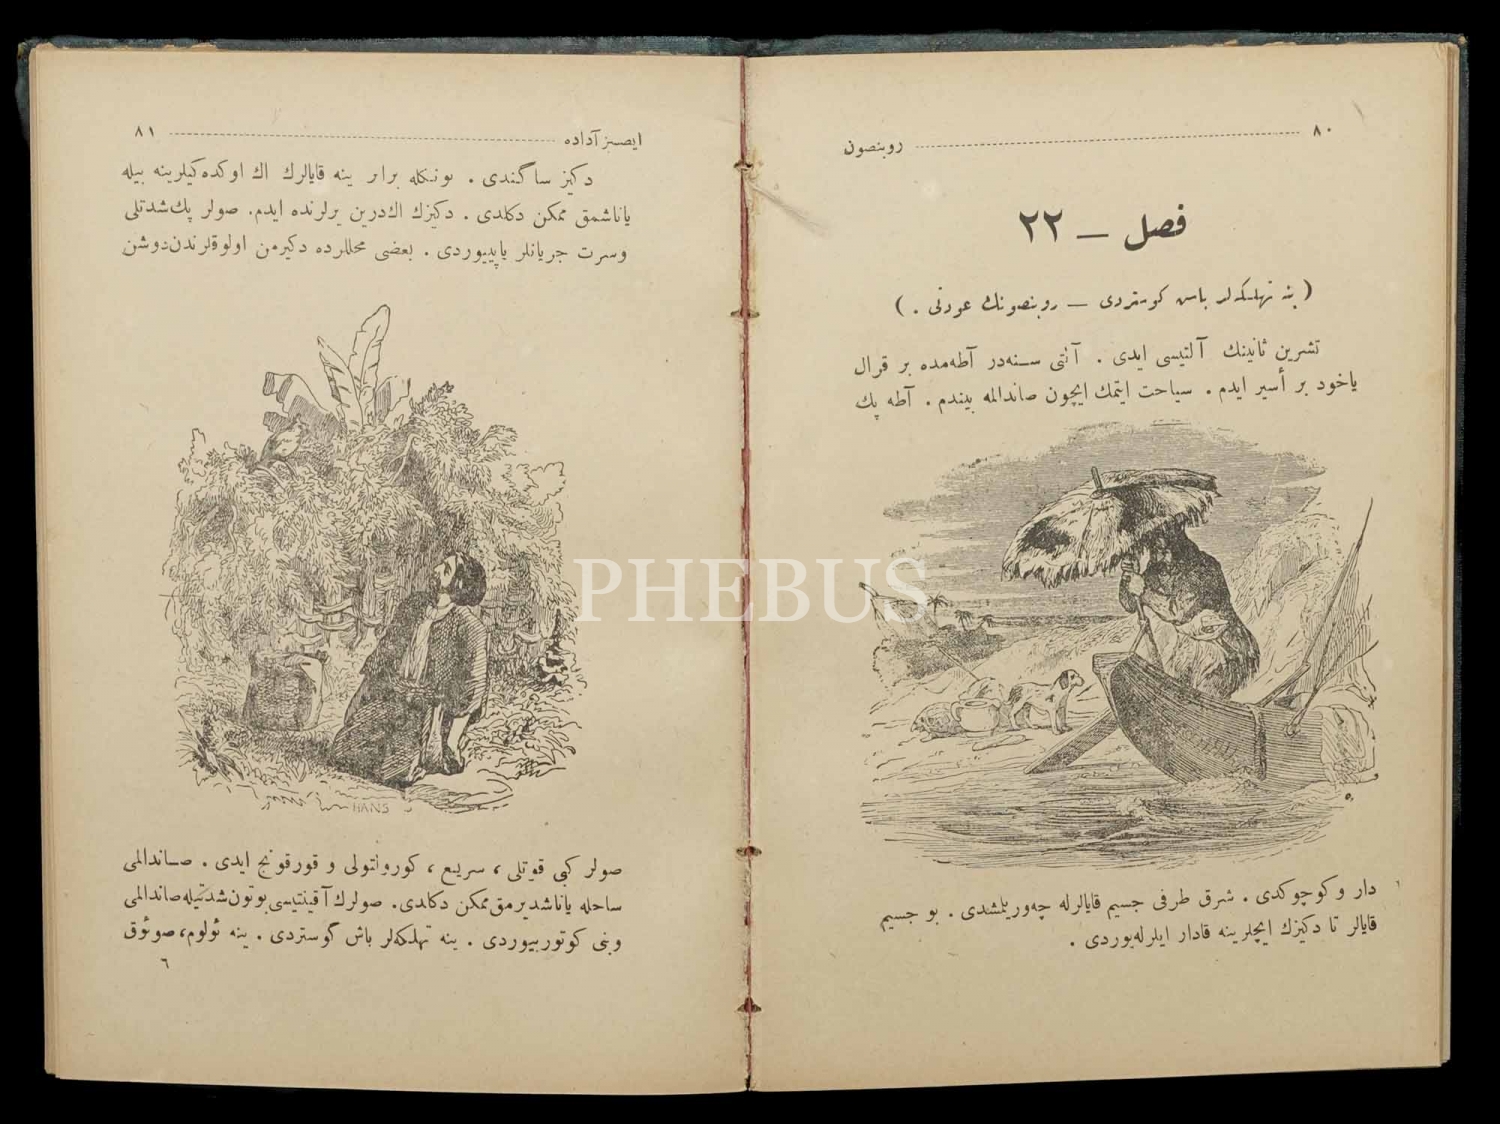 ٨٠
روبنصون
فصل — ٢٢
( ینه تهلكه‌لر باش كوستردی — روبنصونك عودتی . )
تشرین ثانینك آلتیسی ایدی . آلتی سنه‌در آطه‌مده بر قرال
یاخود بر أسیر ایدم . سیاحت ایتمك ایچون صاندالمه بیندم . آطه پك
دار و كوچوكدی . شرق طرفی جسیم قایالرله چه‌وریلمشدی . بو جسیم
قایالر تا دكیزك ایچلرینه قادار ایلرله‌یوردی .
ایصسز آداده
٨١
دكیز ساكندی . بونكله برابر ینه قایالرك اك اوكده‌كیلرینه بیله
یاناشمق ممكن دكلدی . دكیزك اك‌درین یرلرنده ایدم. صولر پك‌شدتلی
وسرت جریانلر یاپییوردی . بعضی محللرده دكیرمن اولوقلرندن‌دوشن
HANS
صولر كبی قوتلی ، سریع ، كورولتولی و قورقونج ایدی . صاندالمی
ساحله یاناشدیرمق‌ممكن دكلدی. صولرك‌آقینتیسی‌بوتون‌شدتیله‌صاندالمی
وبنی كوتوریيوردی . ینه تهلكه‌لر باش گوستردی . ینه ئولوم، صوئوق
٦
PHEBUS